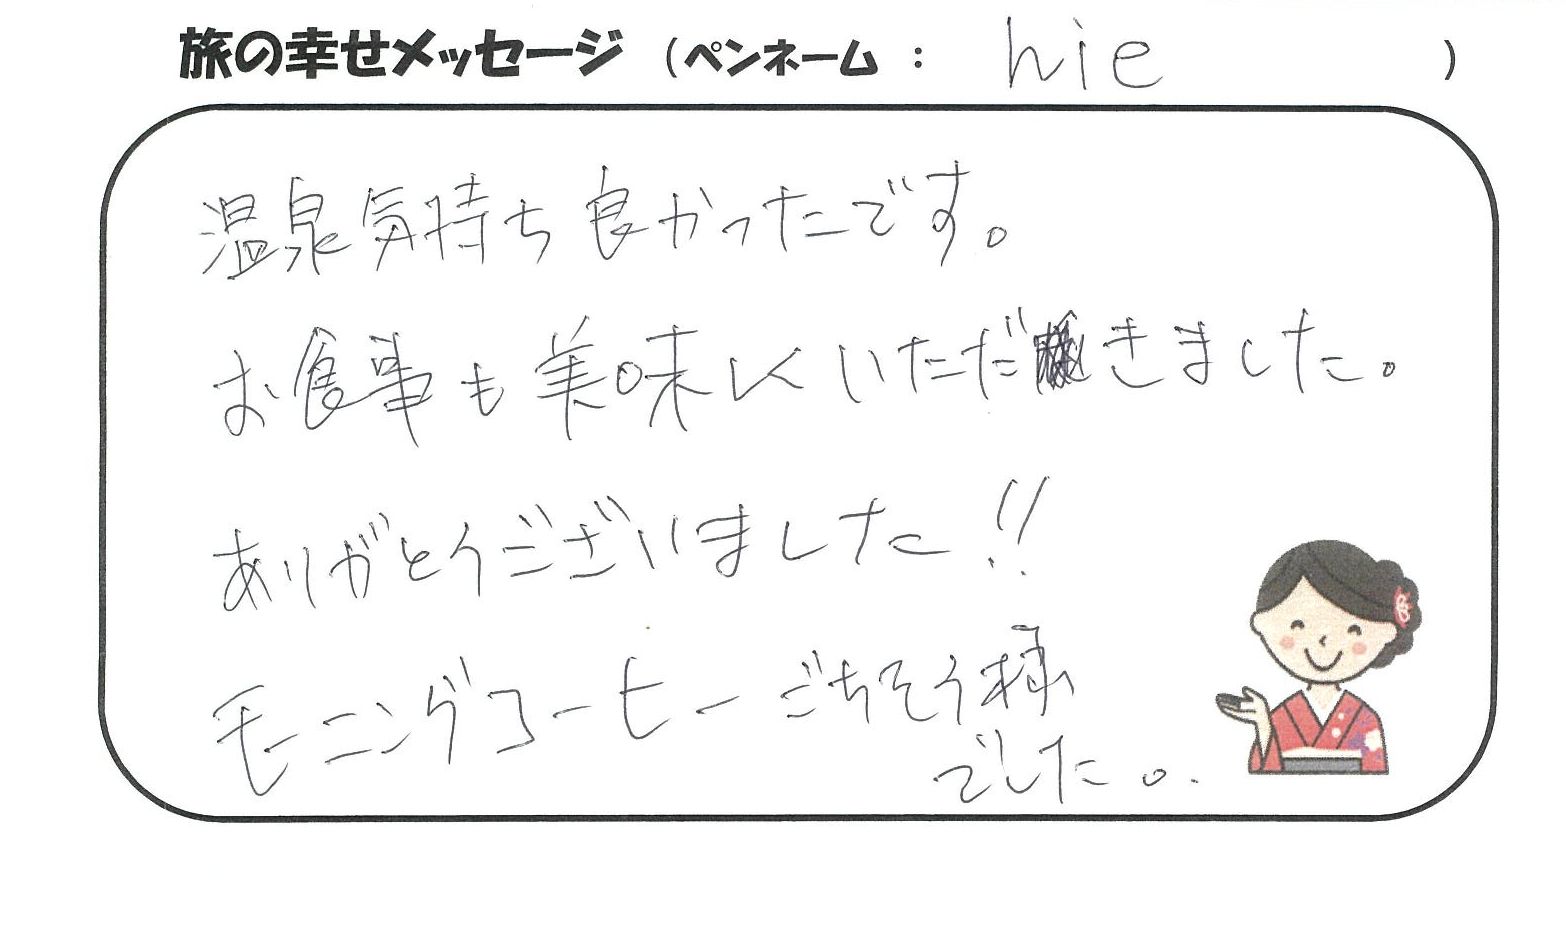 旅の幸せメッセージ （ペンネーム ： hie ）
温泉気持ち良かったです。
お食事も美味しくいただきました。
ありがとうございました!!
モーニングコーヒーごちそう様
でした。